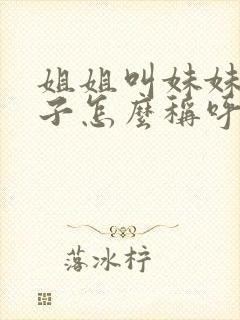 姐姐叫妹妹
子怎麼稱呼
落冰梓